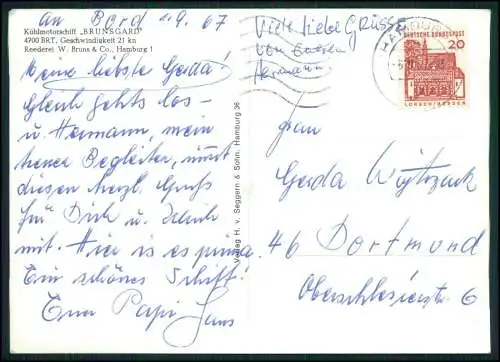 an Bord 1.9.67
Kühlmotorschiff „BRUNSGARD"
4700 BRT, Geschwindigkeit 21 kn
Reederei W. Bruns & Co., Hamburg 1
Meine liebste Gerda!
Gleich gehts los –
u. Hermann, mein
treuer Begleiter, nimmt
diesen herzl. Gruß
für Dich u.
mit. Hier is es prima.
Ein schönes Schiff!
Euer Papi Hans
Viele liebe GRÜSSE
von
Hermann
Verlag H. v. Seggern & Sohn, Hamburg 36
HAMBURG
DEUTSCHE BUNDESPOST
20
LORSCH/HESSEN
Frau
Gerda
46 Dortmund
Oberschlesierstr. 6